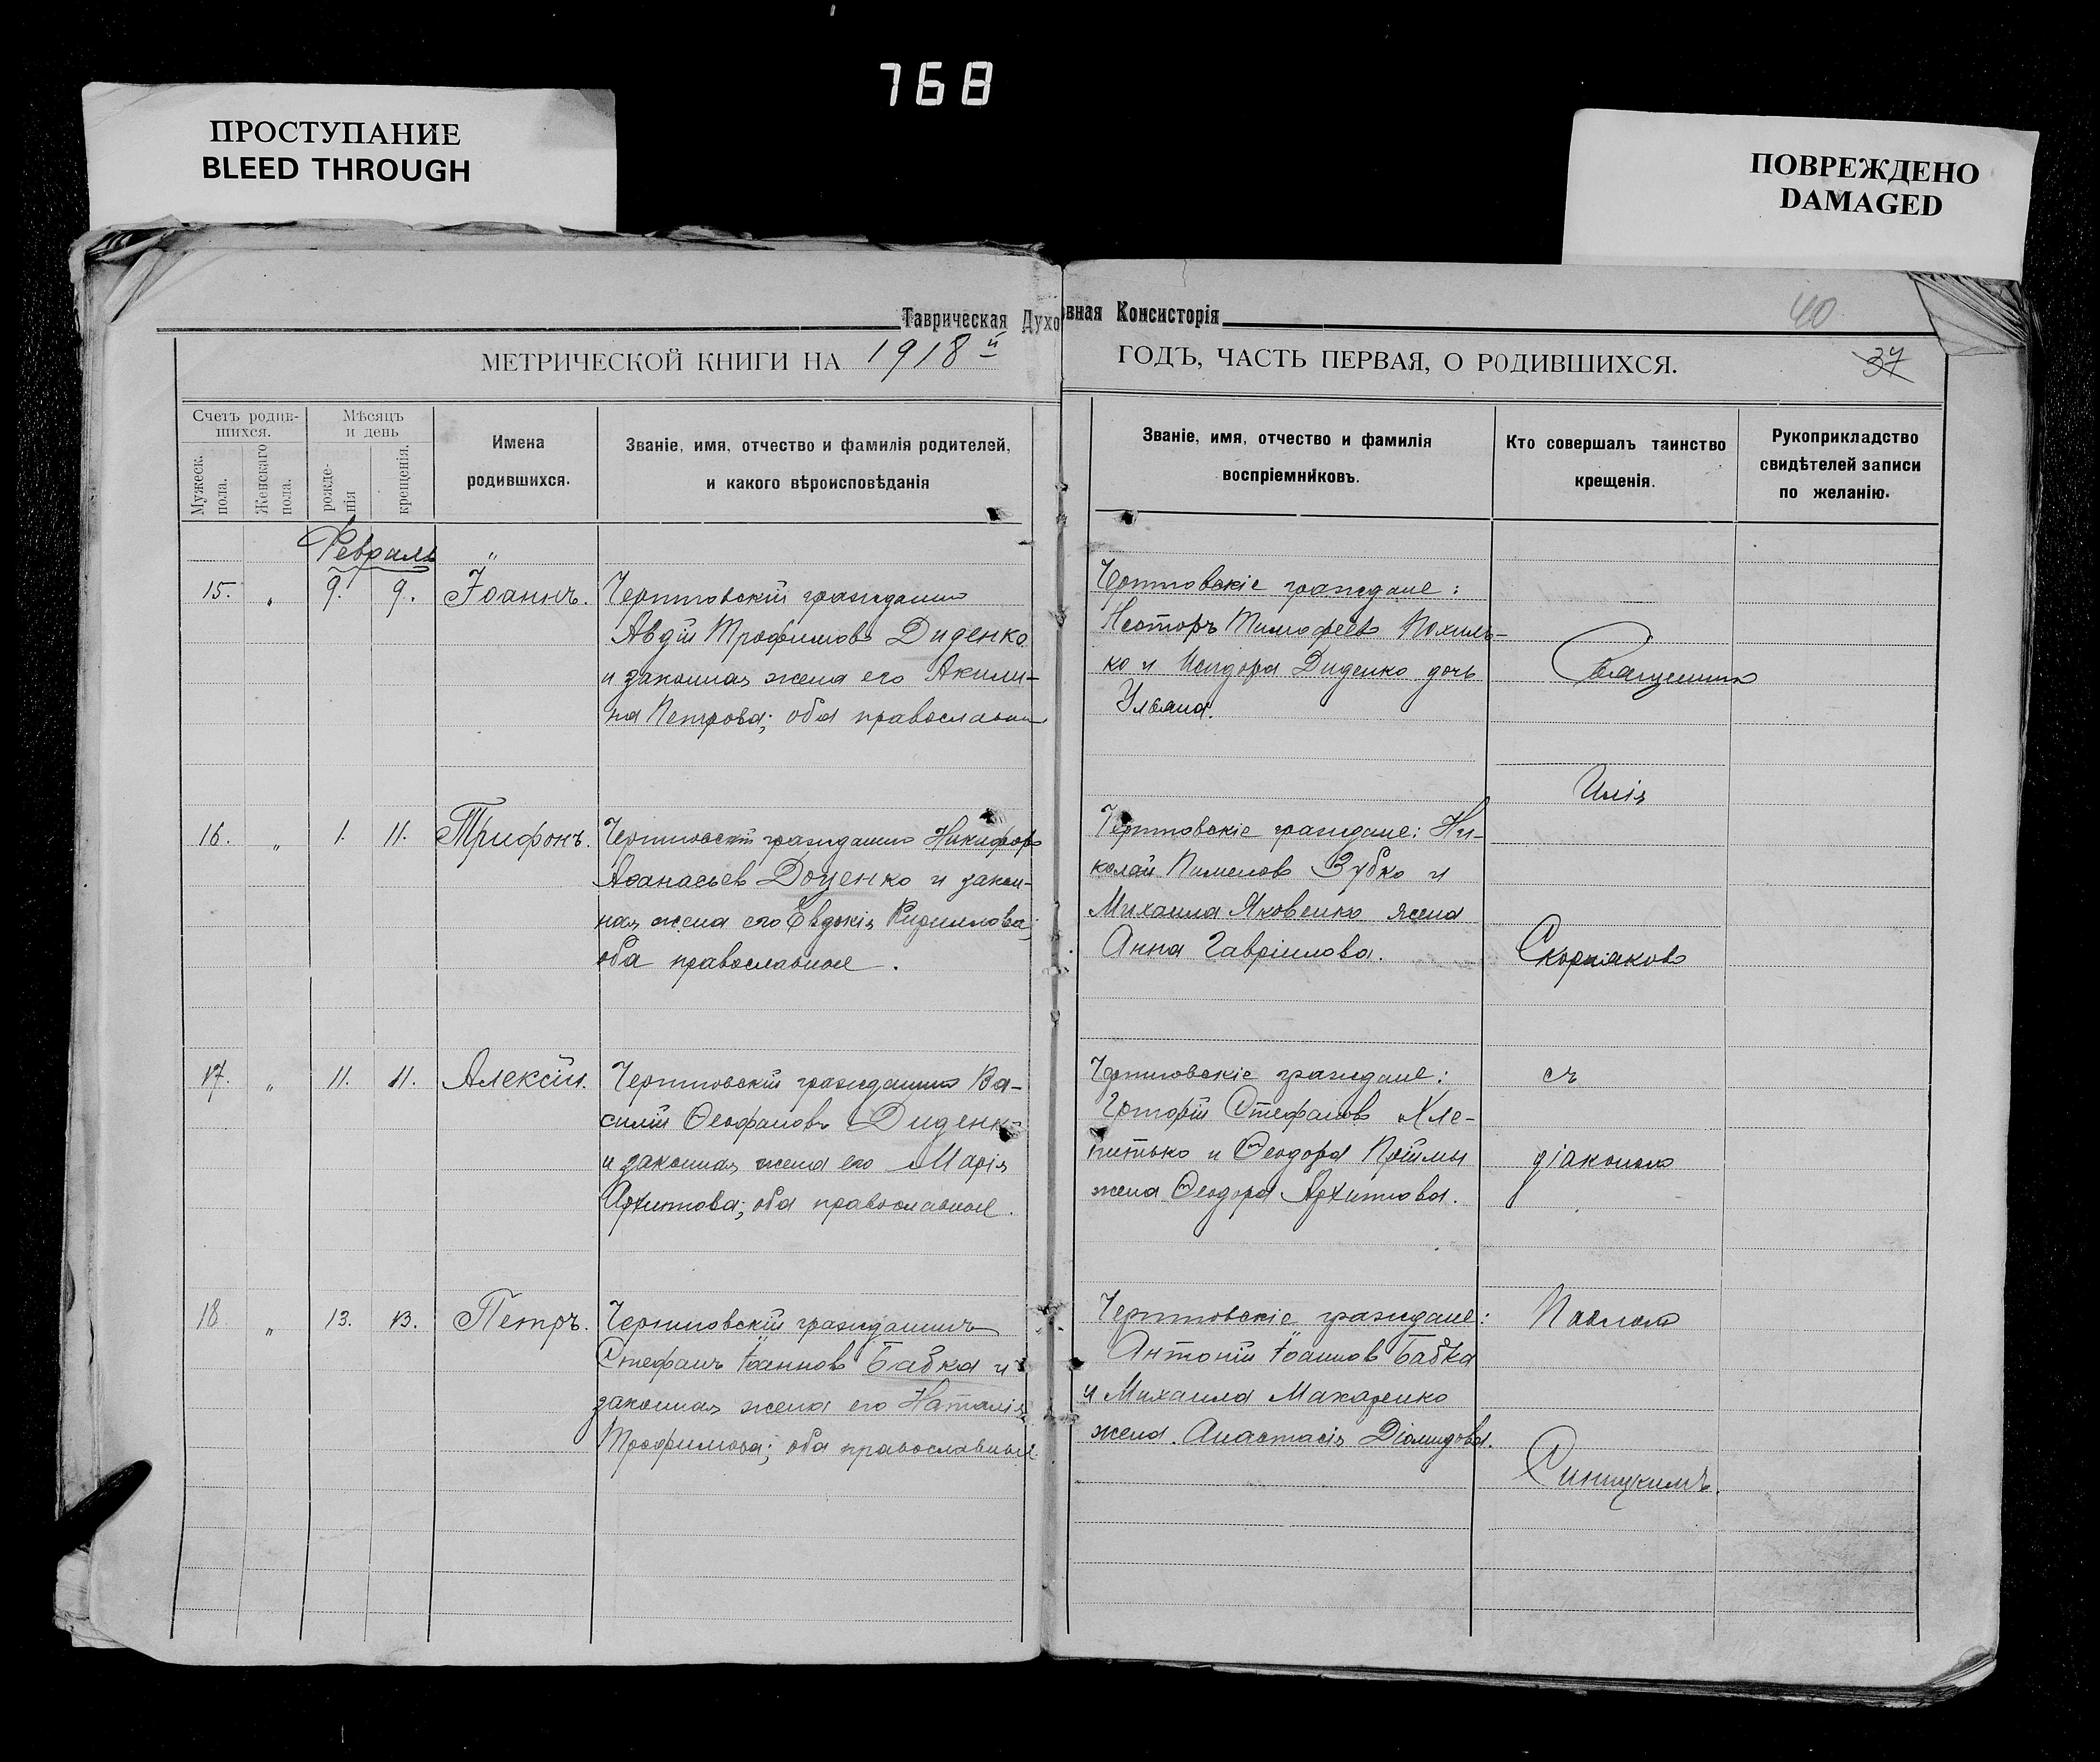 768
ПРОСТУПАНИЕ
BLEED THROUGH
ПОВРЕЖДЕНО
DAMAGED
Таврическая Духовная Консисторія
40
МЕТРИЧЕСКОЙ КНИГИ НА 1918й ГОДЪ, ЧАСТЬ ПЕРВАЯ, О РОДИВШИХСЯ.
37
Счетъ родив-
шихся.
Мужеск. пола.
Женскаго пола.
Мѣсяцъ
и день
рожде-
нія
крещенія.
Имена
родившихся.
Званіе, имя, отчество и фамилія родителей,
и какого вѣроисповѣданія
Званіе, имя, отчество и фамилія
воспріемниковъ.
Кто совершалъ таинство
крещенія.
Рукоприкладство
свидѣтелей записи
по желанію.
Февраль
15. " 9. 9. Іоаннъ.
гражданинъ
Авдій Трофимовъ Диденко
и законная жена его Акили-
на Петрова; оба православные
граждане:
Несторъ Тимофеев Похиль-
ко и Исидора Диденко дочь
Ульяна.
16. " 1. 11. Трифонъ.
гражданинъ Никифоръ
Афанасьев Доценко и закон-
ная жена его Евдокія
оба православные.
граждане: Ни-
колай Пименовъ Зубко и
Михаила Яковенко жена
Анна Гавріилова.
17. " 11. 11. Алексій.
гражданинъ Ва-
силій Ѳеофановъ Диденко
и законная жена его Марія
Архипова; оба православные.
граждане:
Григорій Стефановъ
и Ѳеодора
жена Ѳеодора Архипова.
18 " 13. 13. Петръ.
гражданинъ
Стефанъ Іоанновъ Бабка и
законная жена его Наталія
Трофимова; оба православные
граждане:
Антоній Іоанновъ Бабка
и Михаила Макаренко
жена Анастасія Діомидова.
Священникъ
Илія
Скорняковъ
съ
діакономъ
Павломъ
Синицкимъ.